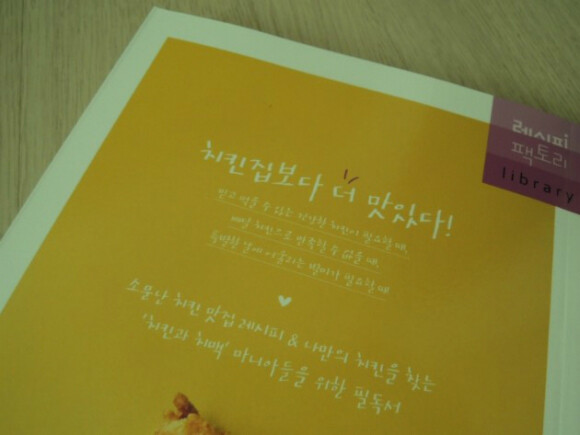 레시피
팩토리
library
치킨집보다 더 맛있다!
믿고 먹을 수 있는 건강한 치킨이 필요할 때,
배달 치킨으로 만족할 수 없을 때,
특별한 날에 어울리는 별미가 필요할 때
소문난 치킨 맛집 레시피 & 나만의 치킨을 찾는
'치킨과 치맥' 마니아들을 위한 필독서